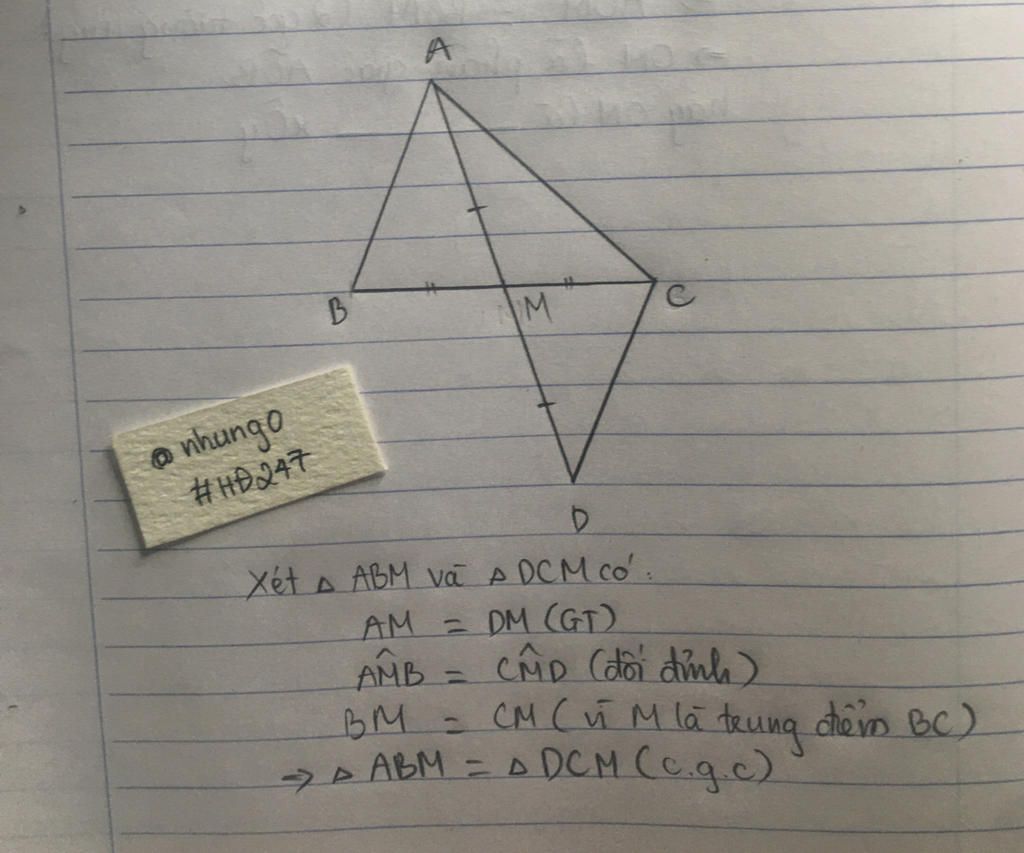 A
B
M
C
@nhung0
#HĐ247
D
Xét △ ABM và △ DCM có:
AM = DM (GT)
AM̂B = CM̂D (đối đỉnh)
BM = CM (vì M là trung điểm BC)
→ △ ABM = △ DCM (c.g.c)